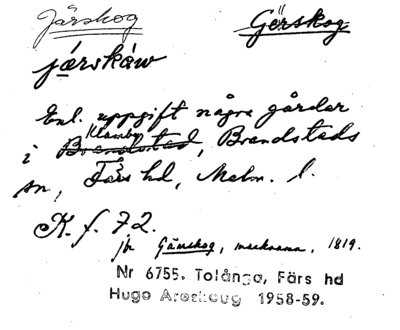 Järskog Görskog
järskáw
Enl. uppgift några gårdar
i Brandstad Klamby, Brandstads
sn, Färs hd, Malm. l.
K. f. 72.
jfr Gärskog, marknamn, 1819.
Nr 6755. Tolånga, Färs hd
Hugo Areskoug 1958-59.